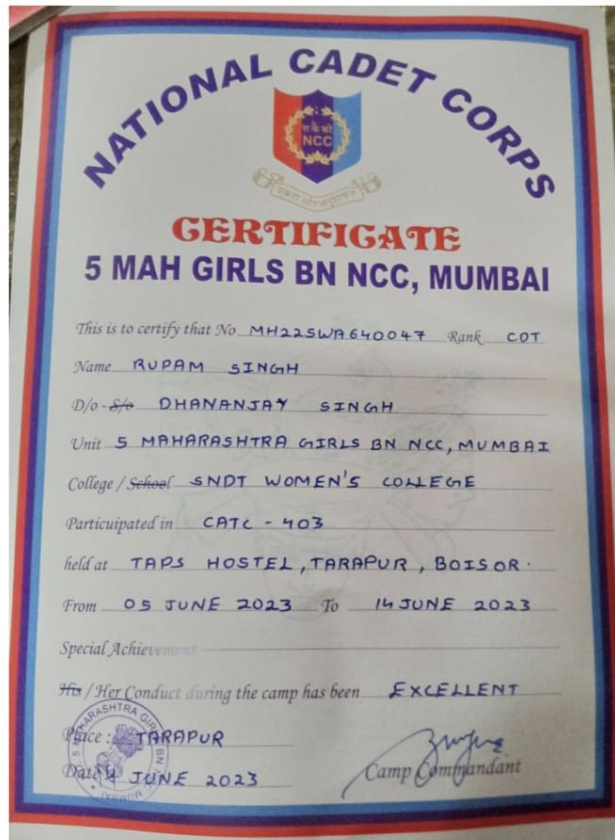 NATIONAL CADET CORPS
रा कै को
NCC
एकता और अनुशासन
CERTIFICATE
5 MAH GIRLS BN NCC, MUMBAI
This is to certify that No MH22SWA640047 Rank CDT
Name RUPAM SINGH
D/o - S/o DHANANJAY SINGH
Unit 5 MAHARASHTRA GIRLS BN NCC, MUMBAI
College / School SNDT WOMEN'S COLLEGE
Particuipated in CATC - 403
held at TAPS HOSTEL, TARAPUR, BOISOR.
From 05 JUNE 2023 To 14 JUNE 2023
Special Achievement
His / Her Conduct during the camp has been EXCELLENT
5 MAHARASHTRA GIRLS BN
Place : TARAPUR
Date 14 JUNE 2023
Camp Commandant